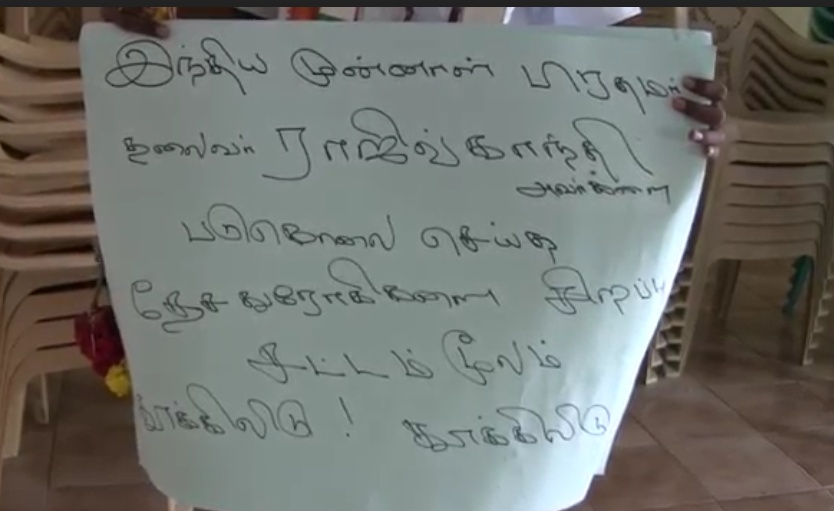 இந்திய முன்னாள் பிரதமர்
தலைவர் ராஜிவ்காந்தி
அவர்களை
படுகொலை செய்த
தேச துரோகிகளை சிறப்பு
சட்டம் மூலம்
தூக்கிலிடு ! தூக்கிலிடு